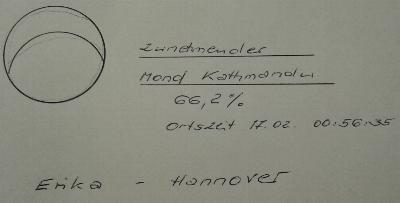 Zunehmender
Mond Kathmandu
66,2%
Ortszeit 17.02. 00:56:35
Erika - Hannover